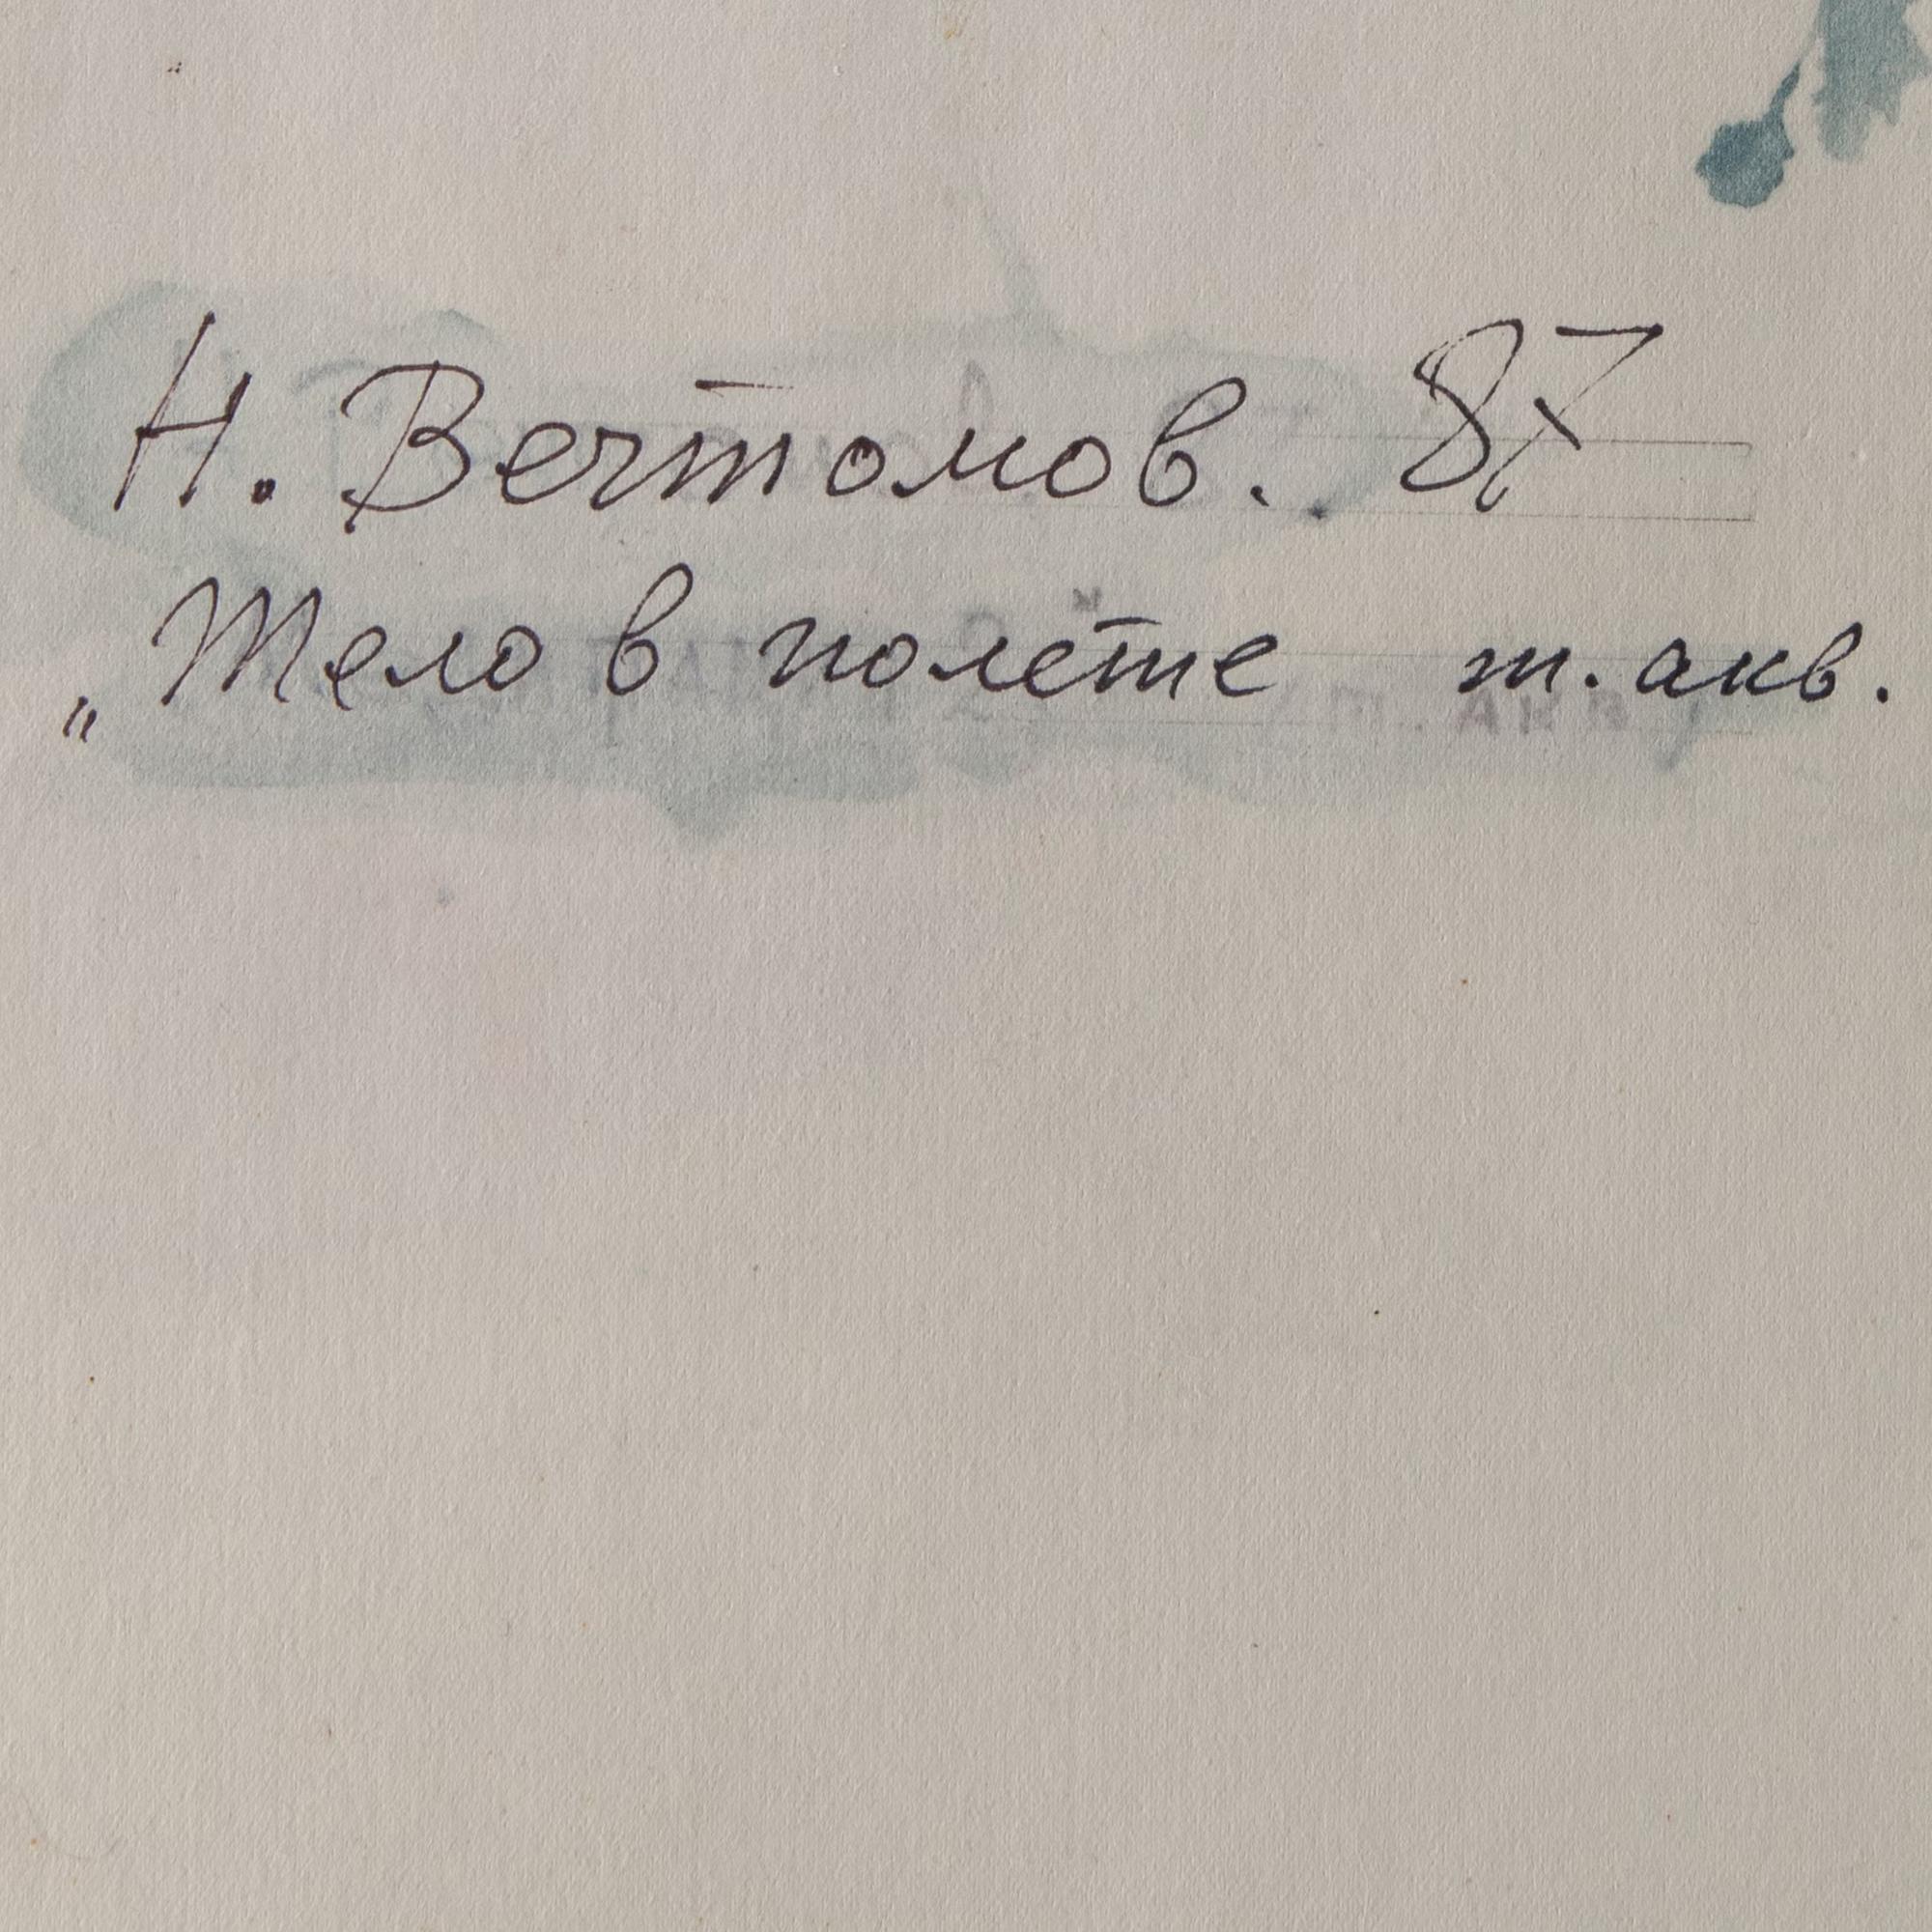 Н. Вечтомов. 87
„Тело в полёте т. акв.